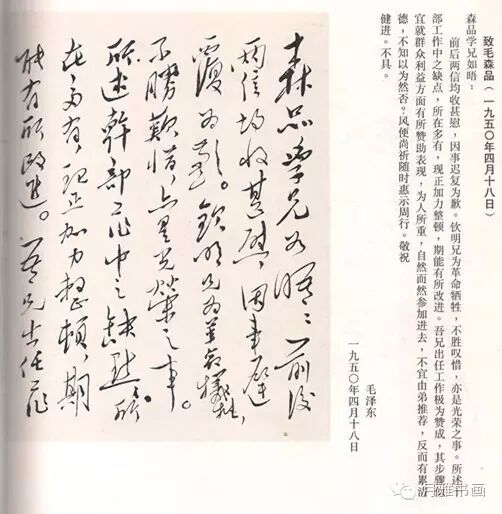 致毛森品(一九五〇年四月十八日)
森品学兄如晤:
前后两信均收甚慰,因事迟复为歉。钦明兄为革命牺牲,不胜叹惜,亦是光荣之事。所述干
部工作中之缺点,所在多有,现正加力整顿,期能有所改进。吾兄出任工作极为赞成,其步骤似
宜就群众利益方面有所赞助表现,为人所重,自然而然参加进去,不宜由弟推荐,反而有累清
德,不知以为然否。风便尚祈随时惠示周行。敬祝
健进。不具。
毛泽东
一九五〇年四月十八日
森品学兄如晤:前后
两信均收甚慰,因事迟
覆为歉。钦明兄为革命牺牲,
不勝歎惜,亦是光榮之事。
所述幹部工作中之缺點,所
在多有,现正加力整頓,期
能有所改進。吾兄出任工作
月雅书画